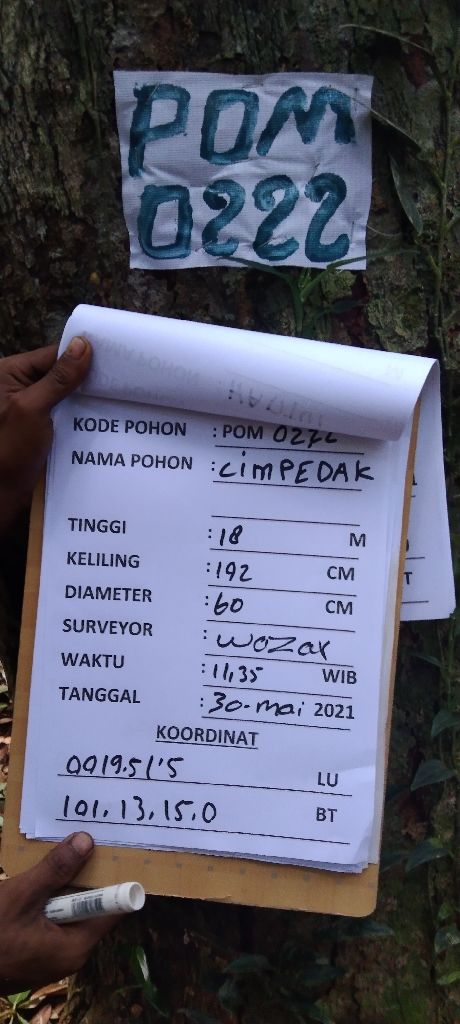 POM
0222
KODE POHON : POM 0222
NAMA POHON : CIMPEDAK
TINGGI : 18 M
KELILING : 192 CM
DIAMETER : 60 CM
SURVEYOR : WOZAX
WAKTU : 11,35 WIB
TANGGAL : 30-mai 2021
KOORDINAT
0019.51'5 LU
101.13.15.0 BT